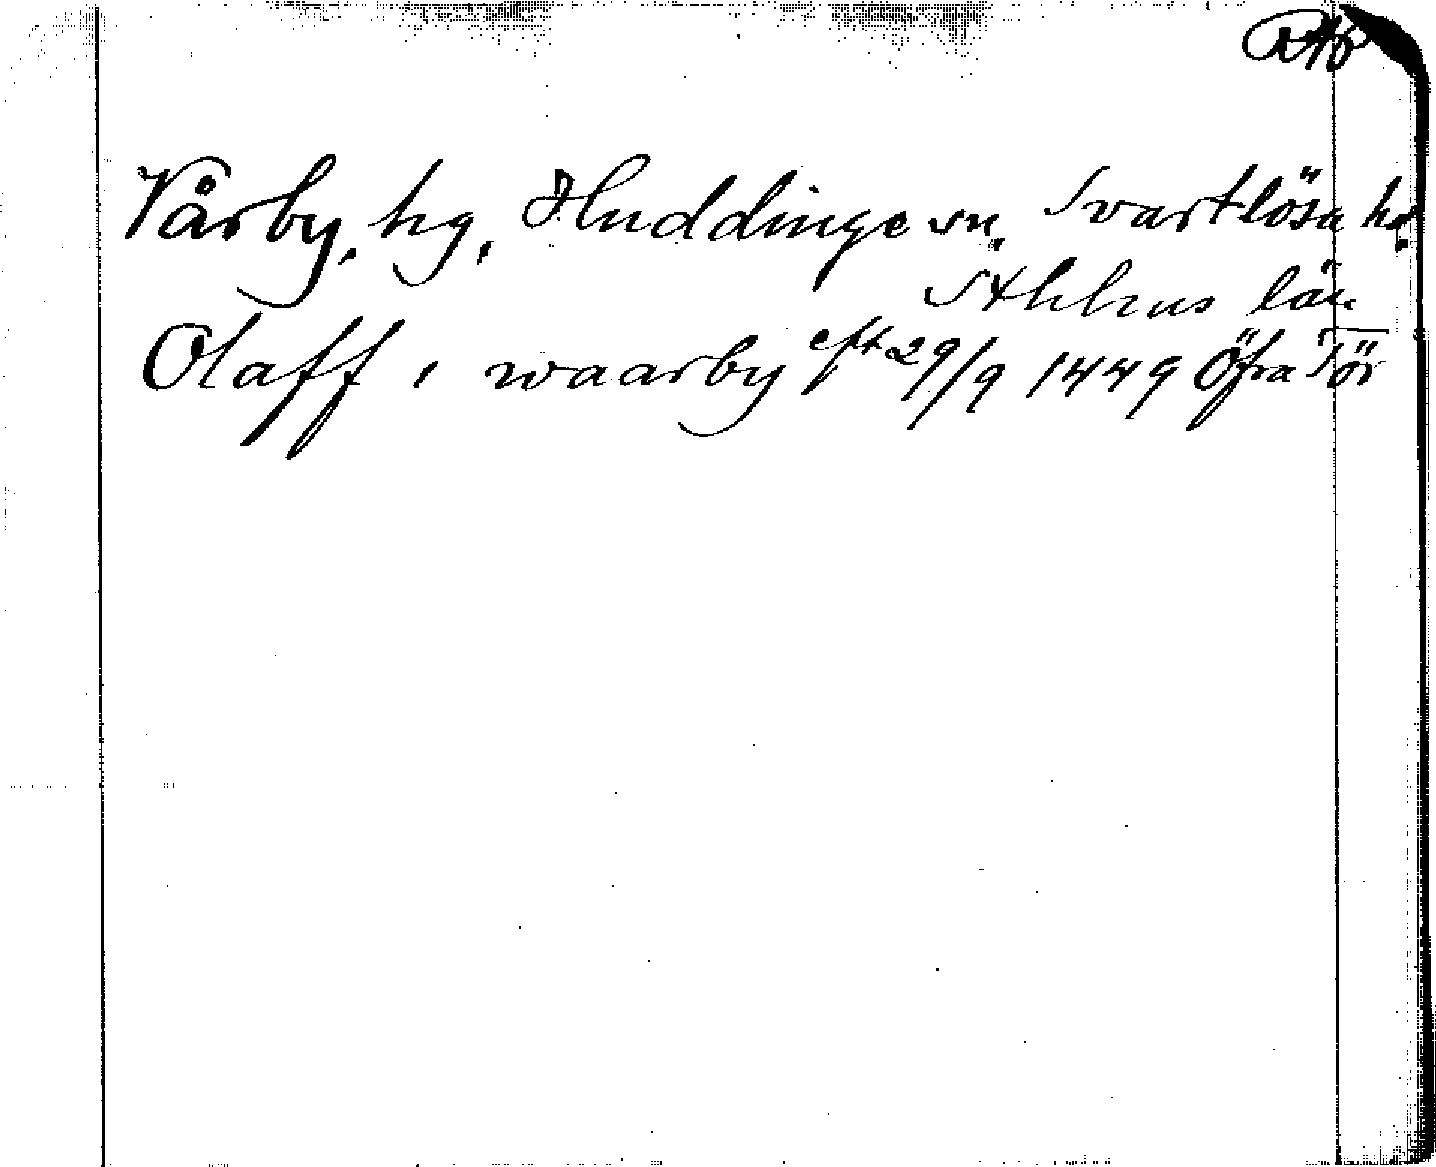 RAp
Vårby, hg, Huddinge sn, Svartlösa hd.
Sthlms län
Olaff i waarby eft 29/9 1449 Öfra Tör